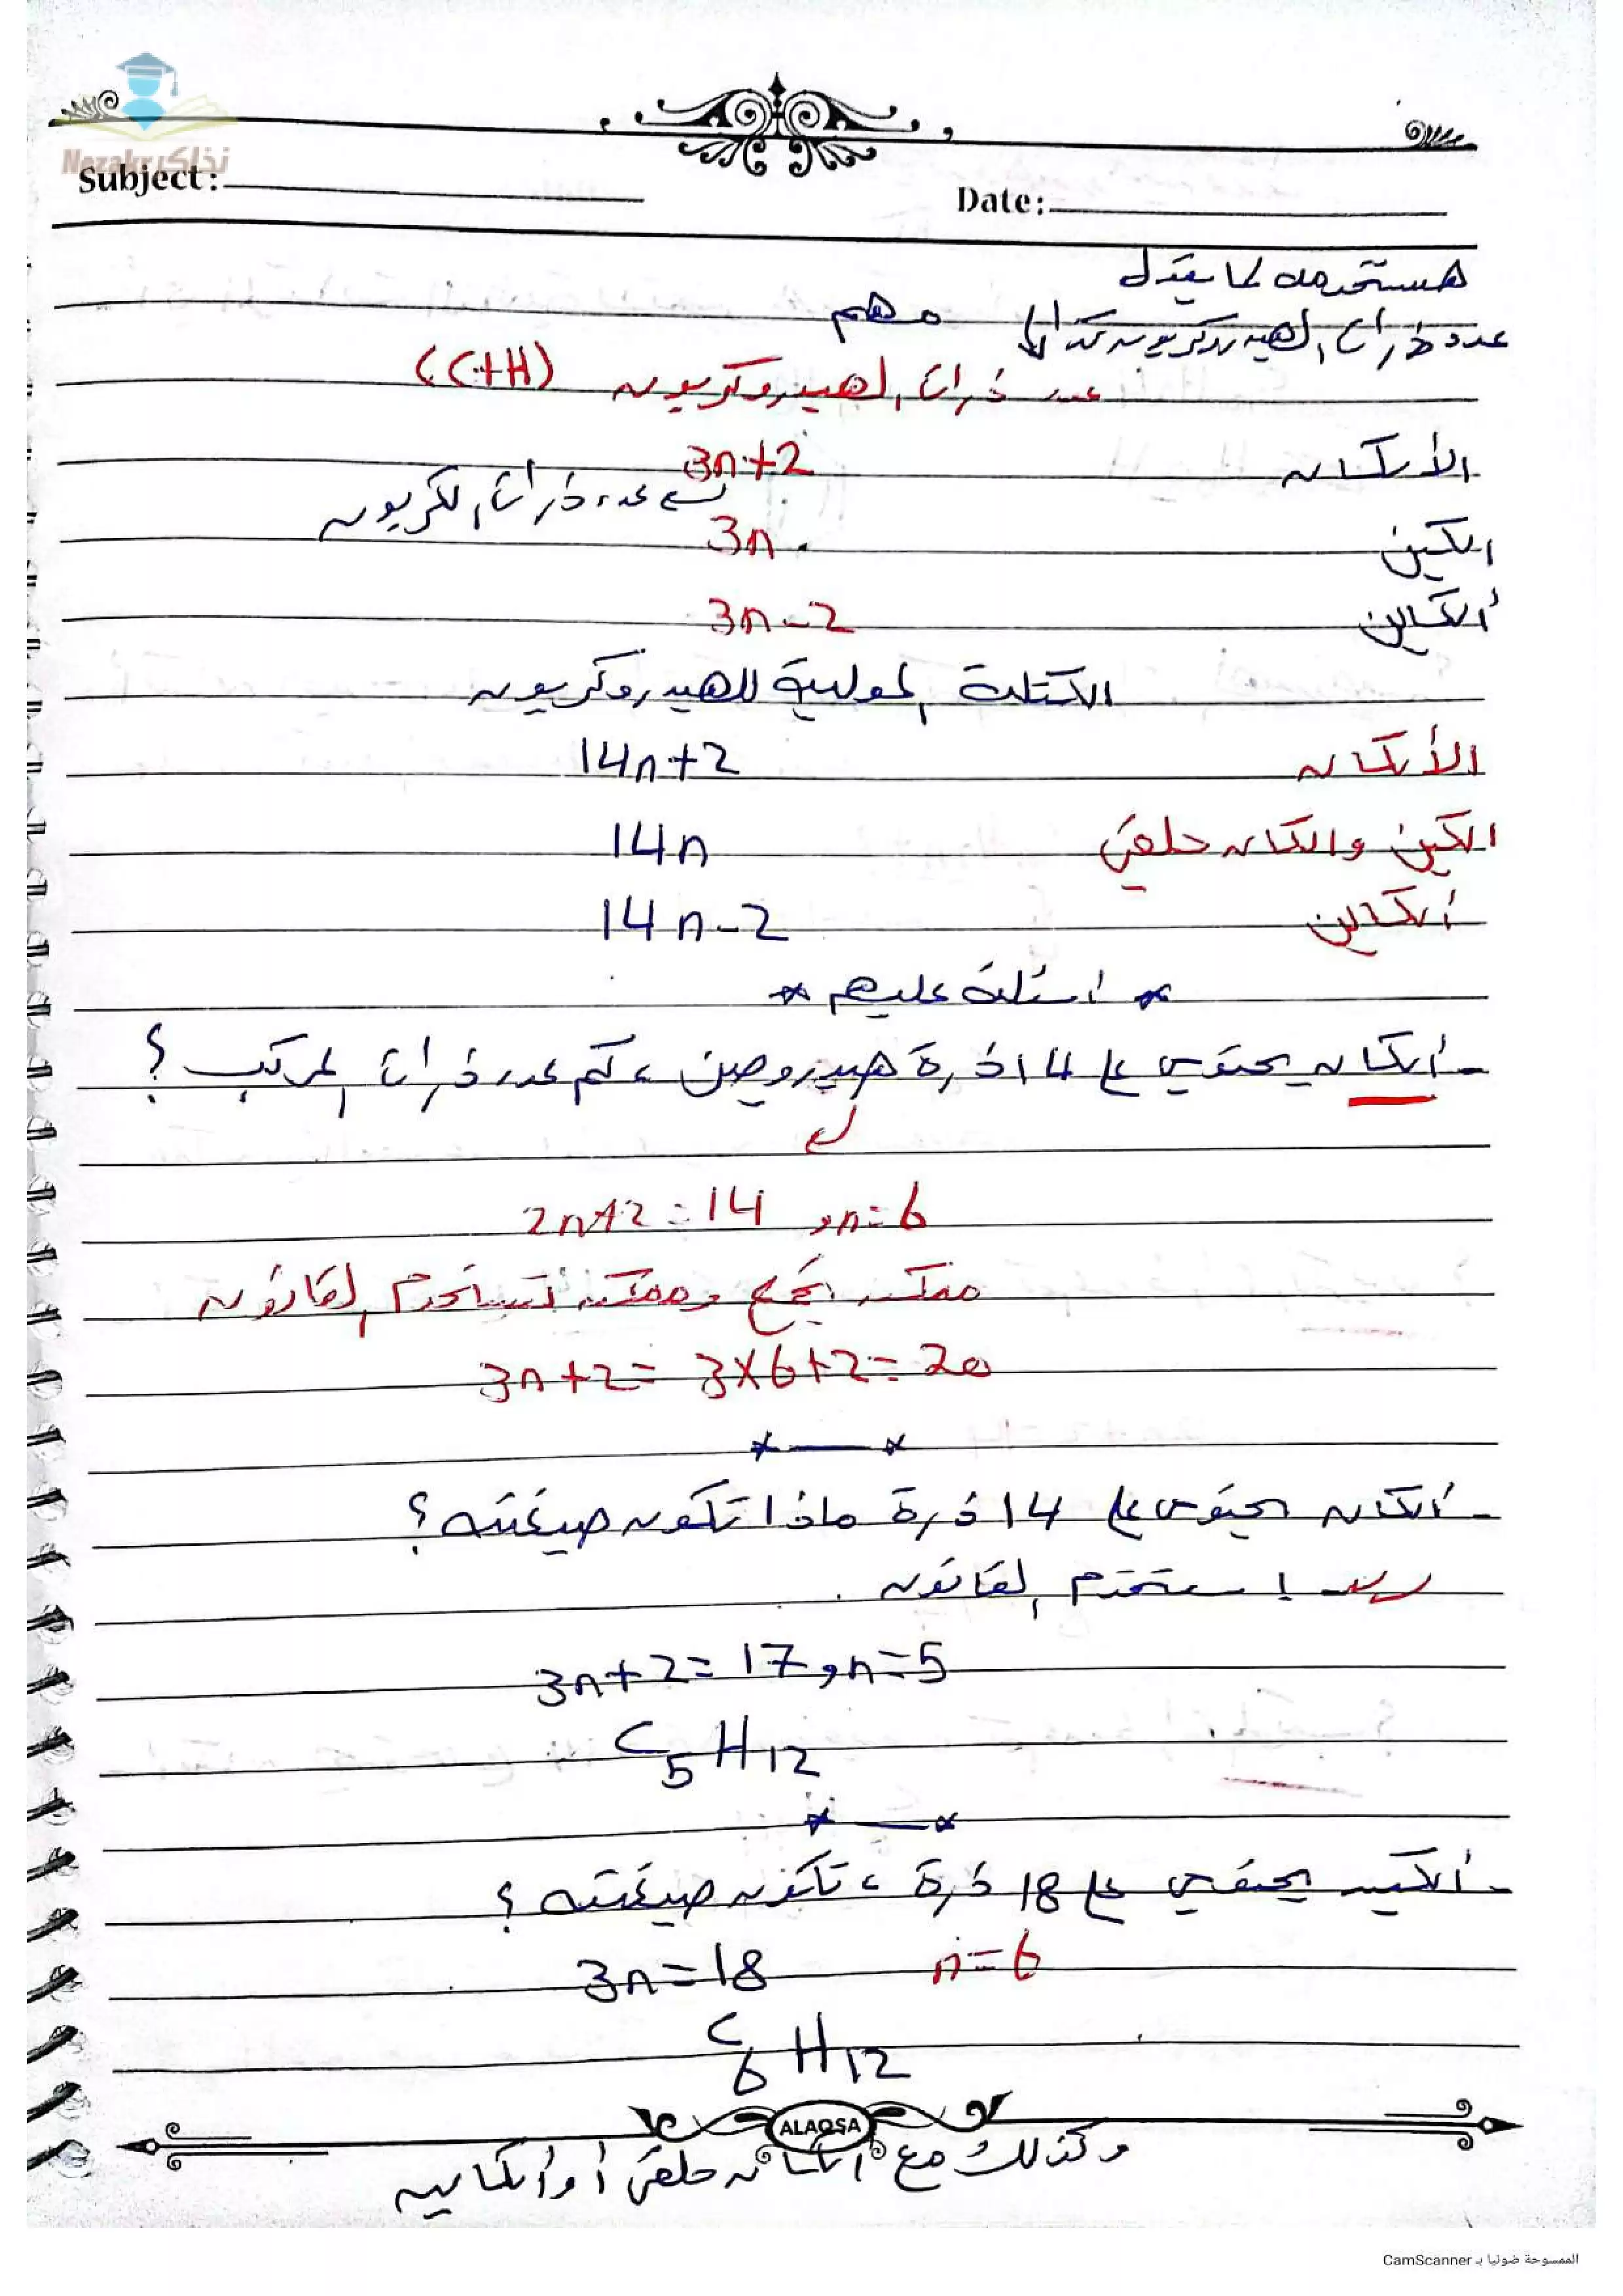 Nezakr نذاكر
Subject:
Date:
هستخدمه لما يقول
عدد ذرات الهيدروكربون كذا مهم
عدد ذرات الهيدروكربون (C+H)
الألكان 3n+2
عدد ذرات الكربون
الكين 3n
ألكاين 3n-2
الكتلة المولية للهيدروكربون
الألكان 14n+2
الكين والكان حلقي 14n
ألكاين 14n-2
* اسئلة عليهم *
- ألكان يحتوي على 14 ذرة هيدروجين، كم عدد ذرات المركب؟
2n+2=14 , n=6
ممكن تجمع وممكن تستخدم القانون
3n+2= 3x6+2= 20
- ألكان يحتوي على 14 ذرة ماذا تكون صيغته؟
استخدم القانون.
3n+2= 17, n=5
C5H12
- ألكين يحتوي على 18 ذرة، تكون صيغته؟
3n=18 n=6
C6H12
ALAQSA
وكذلك مع الكان حلقي أو ألكاين
الممسوحة ضوئيا بـ CamScanner